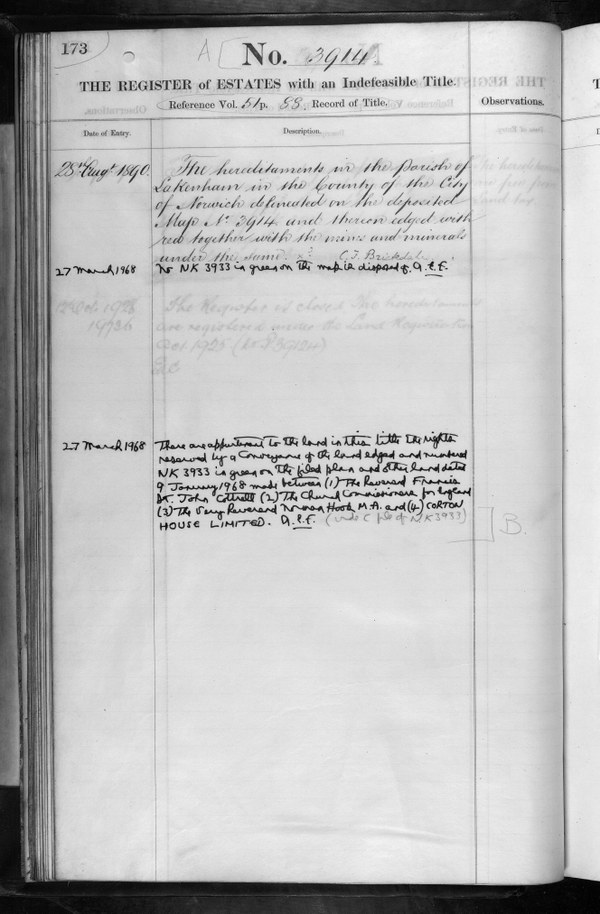 173
A
No. 3914.
THE REGISTER of ESTATES with an Indefeasible Title.
Reference Vol. 51 p. 88. Record of Title.
Observations.
Date of Entry.
Description.
28th Augt. 1890.
The hereditaments in the Parish of
Lakenham in the County of the City
of Norwich delineated on the deposited
Map No. 3914 and thereon edged with
red together with the mines and minerals
under the same. C. F. Brickdale
27 March 1968
No NK 3933 in green on the map is disposed of. G.E.F.
12 Oct. 1926
The Register is closed. The hereditaments
are registered under the Land Registration
Act 1925
27 March 1968
There are appurtenant to the land in this title the rights
reserved by a Conveyance of the land edged and numbered
NK 3933 in green on the filed plan and other land dated
9 January 1968 made between (1) The Reverend Francis
St. John Cottrell (2) The Church Commissioners for England
(3) The Very Reverend Norman Hook M.A. and (4) CORTON
HOUSE LIMITED. G.E.F. (under C file of NK 3933)
B.